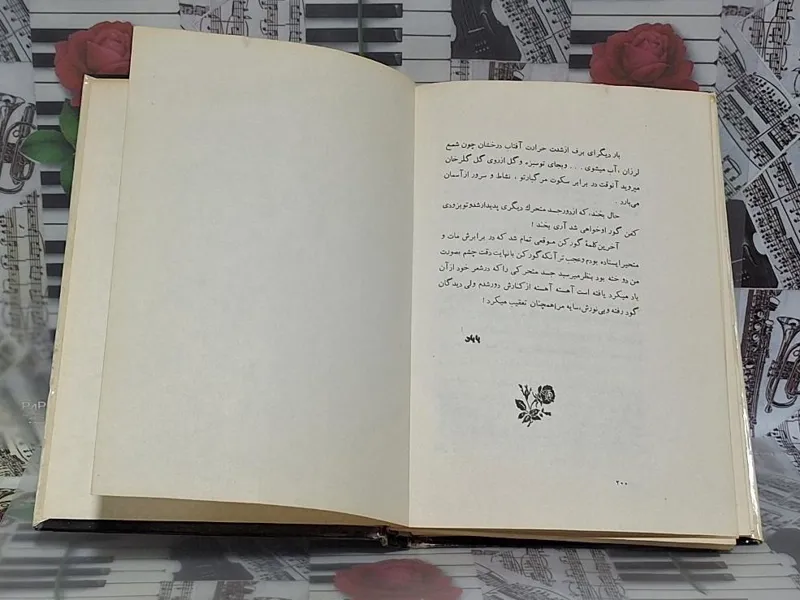 بار دیگر ای برف ازشدت حرارت آفتاب درخشان چون شمع
لرزان، آب میشوی . . . وبجای توسبزه وگل ازروی گل گلرخان
میروید آنوقت در برابر سکوت مرگبارتو، نشاط و سرور ازآسمان
می‌بارد .
حال بخند، که ازدورجسد متحرك دیگری پدیدارشدوتوبزودی
کفن گور اوخواهی شد آری بخند !
آخرین کلمهٔ گورکن موقعی تمام شد که در برابرش مات و
متحیر ایستاده بودم وعجب تر آنکه گورکن بانهایت دقت چشم بصورت
من دوخته بود بنظرمیرسید جسد متحرکی راکه درشعر خود ازآن
یاد میکرد یافته است آهسته آهسته ازکنارش دورشدم ولی دیدگان
گود رفته وبی‌نورش،سایه مراهمچنان تعقیب میکرد !
پایان
۲۰۰